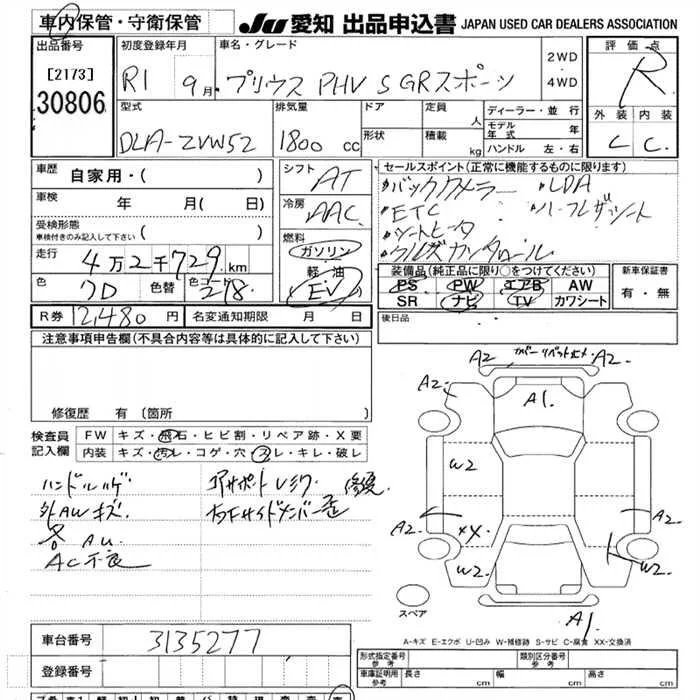 車内保管・守衛保管
JU 愛知 出品申込書 JAPAN USED CAR DEALERS ASSOCIATION
出品番号 初度登録年月 車名・グレード 評価点
[2173]
30806
R1 9月 プリウス PHV S GRスポーツ 2WD 4WD R
型式 排気量 ドア 定員 人 ディーラー・並行 外装 内装
DLA-ZVW52 1800 cc 形状 積載 kg モデル年式 年 C C
ハンドル 左・右
車歴 自家用・( ) シフト AT セールスポイント(正常に機能するものに限ります)
車検 年 月( 日) 冷房 AAC
バックカメラー ・LDA
・ETC ・ハーフレザーシート
・シートヒータ
・クルズカンタロール
受検形態
車検付きのみ記入して下さい ( )
燃料 ガソリン 軽油 EV
走行 4万2千729km
色 7D 色替 色コード 278
装備品(純正品に限り○をつけてください) 新車保証書
PS PW エアB AW 有・無
SR ナビ TV カワシート
R券 12,480円 名変通知期限 月 日
後日品
注意事項申告欄(不具合内容等は具体的に記入して下さい)
修復歴 有 [箇所
検査員記入欄 FW キズ・飛石・ヒビ割・リペア跡・X要
内装 キズ・汚レ・コゲ・穴・スレ・キレ・破レ
ハンドルハゲ コアサポートレミク 修復
外AWキズ. 右Fサイドメンバー歪
各AU
AC不良
A2 カバーリベットナト A2.
A2. A1. A2
W2
A2. XX. A2
W2 W2.
A1
スペア
A-キズ E-エクボ U-凹み W-補修跡 S-サビ C-腐食 XX-交換済
車台番号 3135277
登録番号
形式指定番号 参考 類別区分番号 参考
車庫証明用 参考 長さ cm 幅 cm 高さ cm